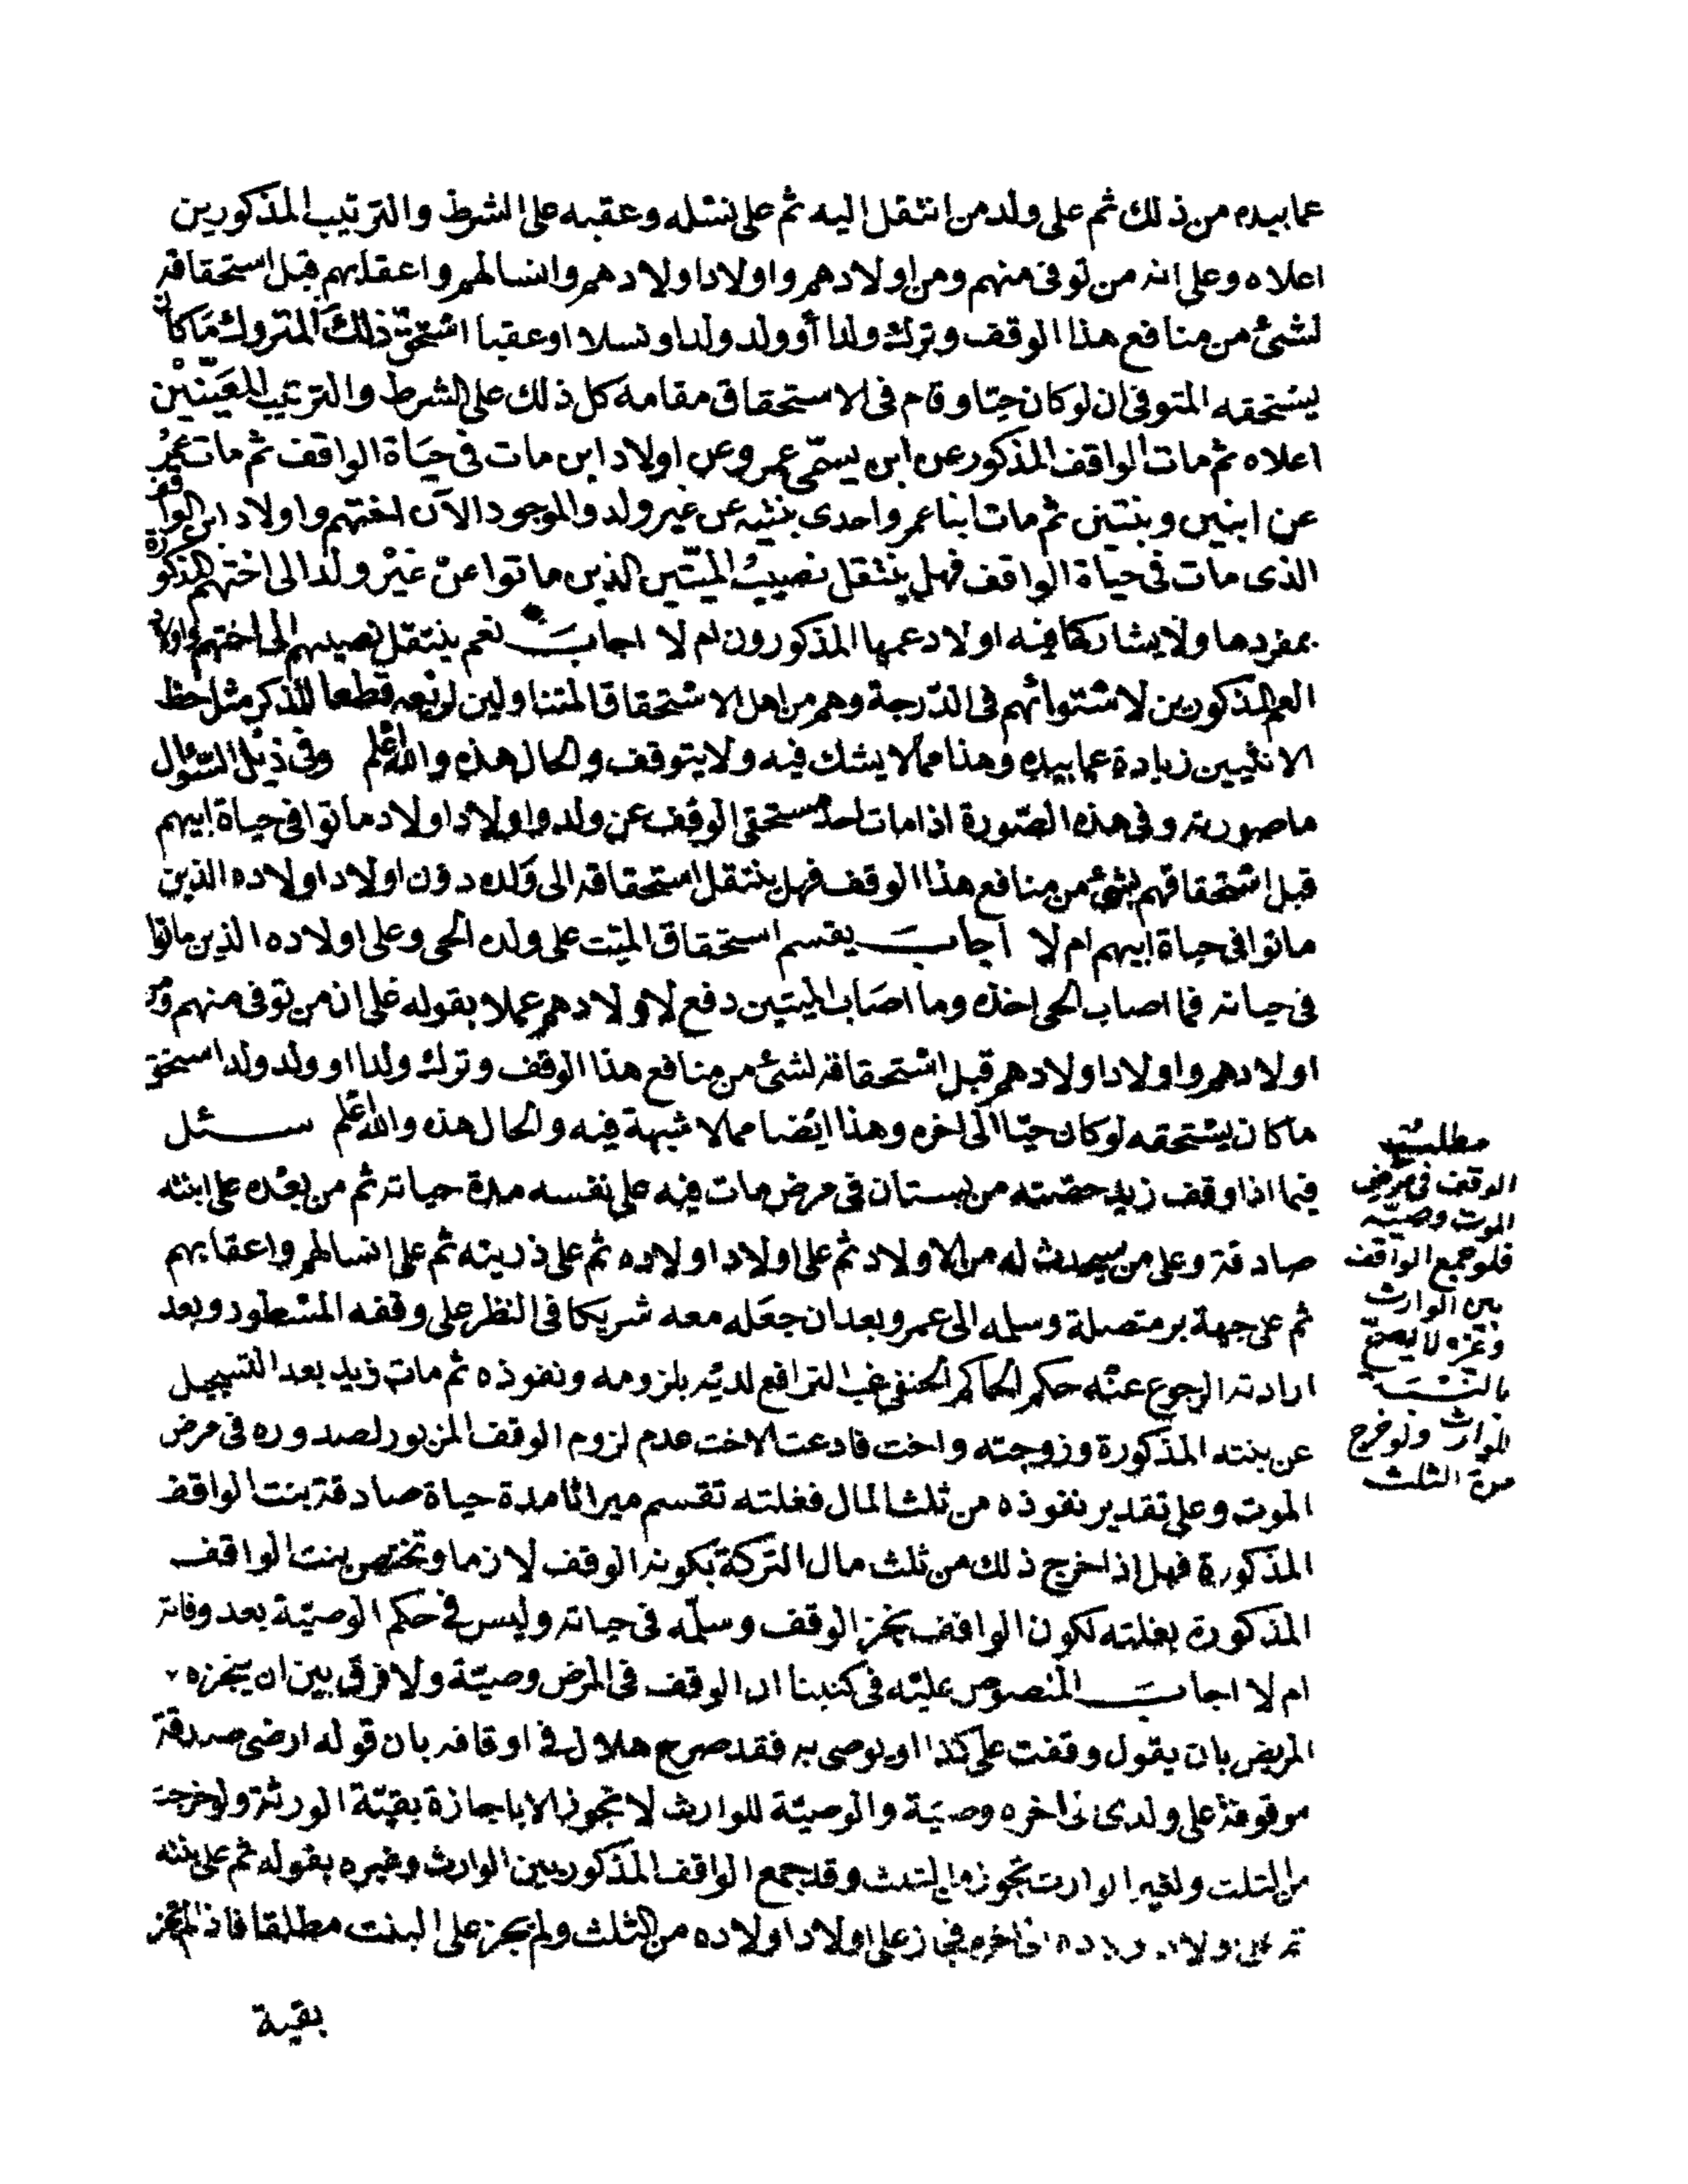 عما بيده من ذلك ثم على ولد من انتقل اليه ثم على نسله وعقبه على الشرط والترتيب المذكورين
اعلاه وعلى انه من توفى منهم ومن اولادهم واولاد اولادهم وانسالهم واعقابهم قبل استحقاقه
لشئ من منافع هذا الوقف وترك ولدا أو ولد ولد او نسلا او عقبا استحق ذلك المتروك ما كان
يستحقه المتوفى ان لو كان حيّا وقام فى الاستحقاق مقامه كل ذلك على الشرط والترتيب المعيّنين
اعلاه ثم مات الواقف المذكور عن ابن يسمّى عمر وعن اولاد ابن مات فى حياة الواقف ثم مات عمر
عن ابنين وبنتين ثم مات ابنا عمر واحدى بنتيه عن غير ولد والموجود الآن اختهم واولاد ابن الواقف
الذى مات فى حياة الواقف فهل ينتقل نصيب الميّتين الذين ماتوا عن غير ولد الى اختهم المذكورة
بمفردها ولا يشاركها فيه اولاد عمها المذكورون ام لا اجاب نعم ينتقل نصيبهم الى اختهم واولاد
العم المذكورين لاستوائهم فى الدّرجة وهم من اهل الاستحقاق المتناولين لريعه قطعا للذكر مثل حظ
الانثيين زيادة عما بيده وهذا مما لا يشك فيه ولا يتوقف والحال هذه والله اعلم وفى ذيل السؤال
ما صورته وفى هذه الصّورة اذا مات احد مستحقى الوقف عن ولد واولاد اولاد ماتوا فى حياة ابيهم
قبل استحقاقهم لشئ من منافع هذا الوقف فهل ينتقل استحقاقه الى ولده دون اولاد اولاده الذين
ماتوا فى حياة ابيهم ام لا اجاب يقسم استحقاق الميّت على ولده الحى وعلى اولاده الذين ماتوا
فى حياته فما اصاب الحى اخذه وما اصاب الميتين دفع لاولادهم عملا بقوله على ان من توفى منهم ومن
اولادهم واولاد اولادهم قبل استحقاقه لشئ من منافع هذا الوقف وترك ولدا او ولد ولد استحق
ما كان يستحقه لو كان حيّا الى اخره وهذا ايضا مما لا شبهة فيه والحال هذه والله اعلم سئل
فيما اذا وقف زيد حصته من بستان فى مرض مات فيه على نفسه مدة حياته ثم من بعده على ابنته
صادقة وعلى من سيحدث له من الاولاد ثم على اولاد اولاده ثم على ذريته ثم على انسالهم واعقابهم
ثم على جهة بر متصلة وسلمه الى عمرو بعد ان جعله معه شريكا فى النظر على وقفه المسطور وبعد
ارادته الرجوع عنه حكم الحاكم الحنفى غب الترافع لديه بلزومه ونفوذه ثم مات زيد بعد التسجيل
عن بنته المذكورة وزوجته واخت فادعت الاخت عدم لزوم الوقف المزبور لصدوره فى مرض
الموت وعلى تقدير نفوذه من ثلث المال فغلته تقسم ميراثا مدة حياة صادقة بنت الواقف
المذكورة فهل اذا خرج ذلك من ثلث مال التركة بكونه الوقف لازما وتختص بنت الواقف
المذكورة بغلته لكون الواقف نجز الوقف وسلّمه فى حياته وليس فى حكم الوصيّة بعد وفاته
ام لا اجاب المنصوص عليه فى كتبنا ان الوقف فى المرض وصيّة ولا فرق بين ان ينجزه
المريض بان يقول وقفت على كذا او يوصى به فقد صرح هلال فى اوقافه بان قوله ارضى صدقة
موقوفة على ولدى الى اخره وصيّة والوصيّة للوارث لا تجوز الا باجازة بقيّة الورثة ولو خرجت
من الثلث ولغير الوارث تجوز من الثلث وقد جمع الواقف المذكور بين الوارث وغيره بقوله ثم على بنته
ثم على اولاد اولاده الى اخره فجاز على اولاد اولاده من الثلث ولم يجز على البنت مطلقا فاذا لم تجز
بقية
مطلب
الوقف فى مرض
الموت وصيّه
فلو جمع الواقف
بين الوارث
وغيره لا يصح
بالنسبة
للوارث ولو خرج
من الثلث